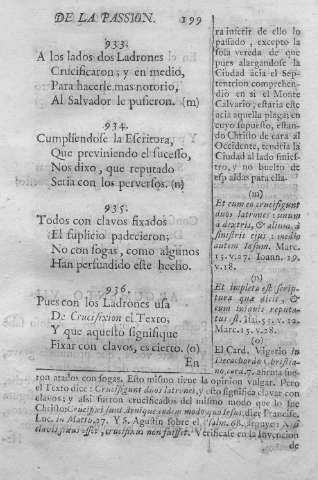 DE LA PASSION. 199
933.
A los lados dos Ladrones
Crucificaron, y en medio,
Para hacerle mas notorio,
Al Salvador le pusieron. (m)
934.
Cumpliendose la Escritura,
Que previniendo el sucesso,
Nos dixo, que reputado
Seria con los perversos. (n)
935.
Todos con clavos fixados
El suplicio padecieron;
No con sogas, como algunos
Han persuadido este hecho.
936.
Pues con los Ladrones usa
De Crucifixion el Texto,
Y que aquesto signifique
Fixar con clavos, es cierto. (o)
En
ra inferir de ello lo
passado, excepto la
sola vereda de que
pues alargandose la
Ciudad àcia el Sep-
tentrion comprehen-
diò en sì el Monte
Calvario; estaria este
àcia aquella plaga; en
cuyo supuesto, estan-
do Christo de cara al
Occidente, tendria la
Ciudad al lado sinies-
tro, y no buelto de
espaldas para ella.
(m)
Et cum eo crucifigunt
duos latrones: unum
à dextris, & alium à
sinistris ejus; medio
autem Iesum. Marc.
15. v. 27. Ioann. 19.
v. 18.
(n)
Et impleta est scrip-
tura quæ dicit, &
cum iniquis reputa-
tus est. Isai. 53. v. 12.
Marc. 15. v. 28.
(o)
El Card. Vigerio in
Decachordo Christia-
no, cora. 7. 
ron atados con sogas. Esto mismo tiene la opinion vulgar. Pero
el Texto dice: Crucifigunt duos latrones, y esto significa clavar con
clavos; y assi fueron crucificados del mismo modo que lo fue
Christo: Crucifixi sunt denique eodem modo quo Iesus, dice Francisc.
Luc. in Matth. 27. Y S. Agustin sobre el Psalm. 68. arguye: A si
clavis fixus esset, crucifixio non fuisset. Verificase en la Invencion
de